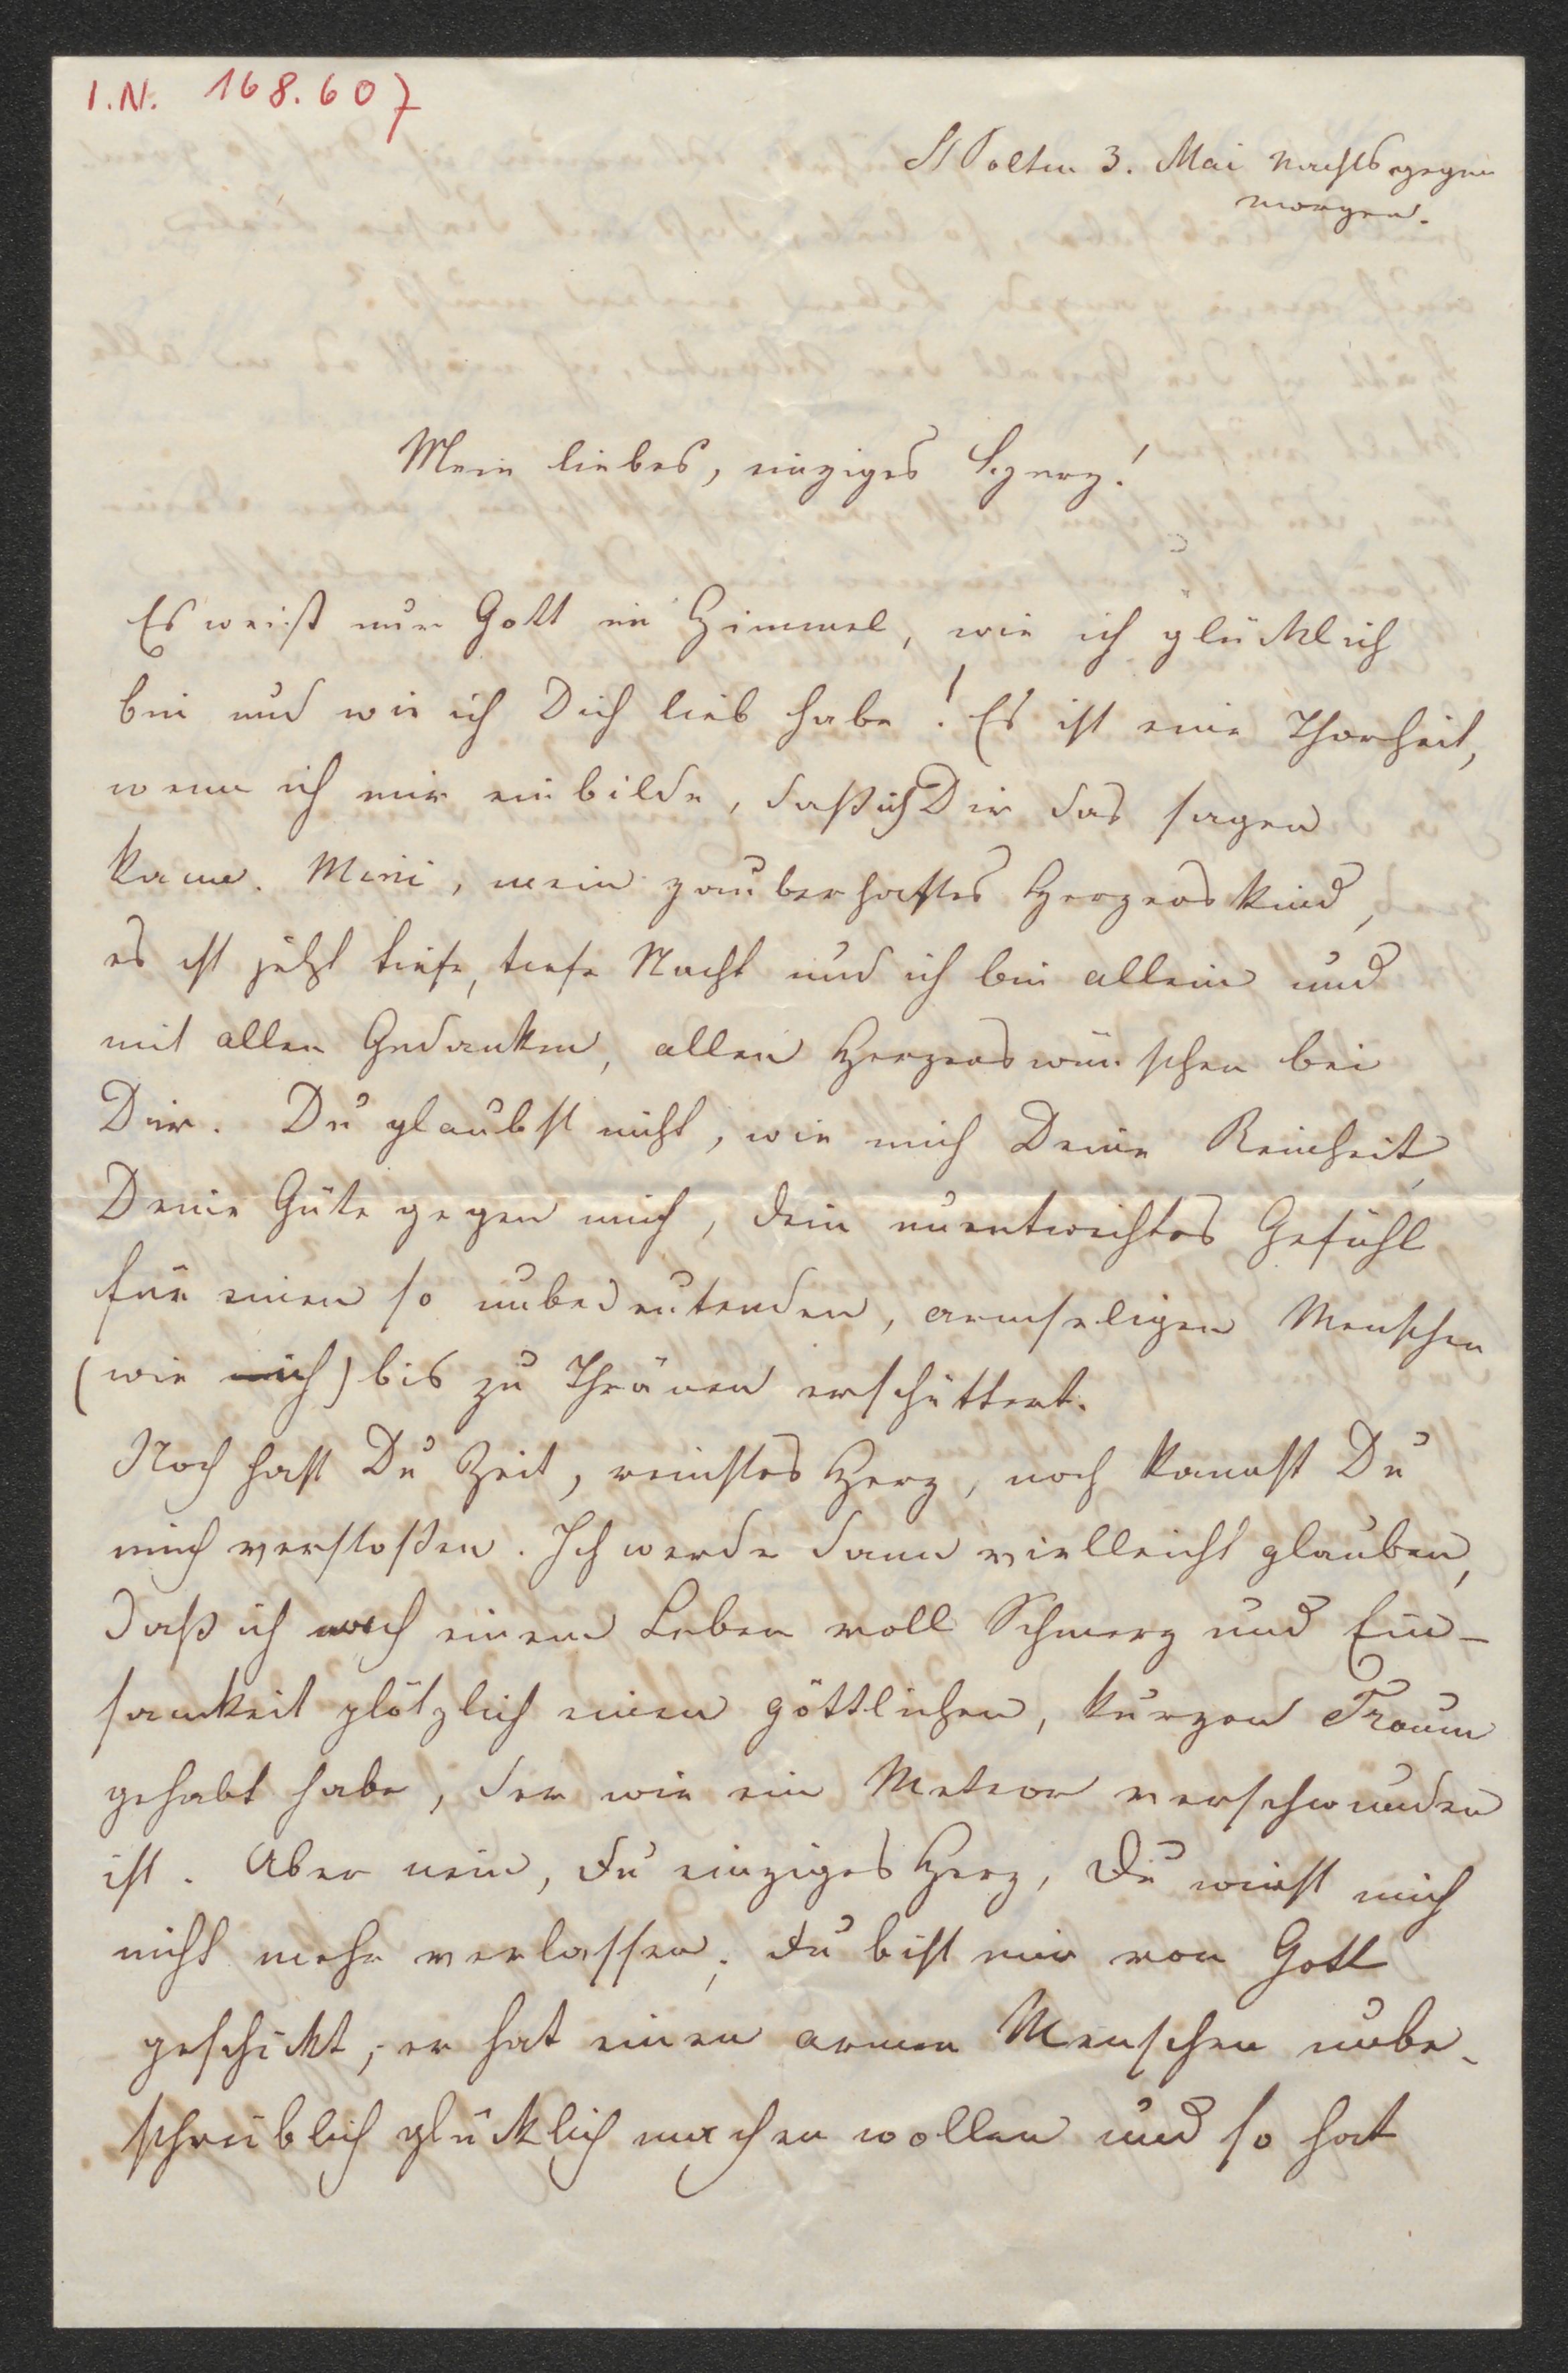 I.N. 168.607
St Polten 3. Mai Nachts gegen
morgen.
Mein liebes, einziges Herz!
Es weißt nur Gott im Himmel, wie ich glücklich
bin und wie ich Dich lieb habe! Es ist eine Thorheit,
wenn ich mir einbilde, daß ich Dir das sagen
kann. Mini, mein zauberhaftes Herzenskind,
es ist jetzt tiefe, tiefe Nacht und ich bin allein und
mit allen Gedanken, allen Herzenswünschen bei
Dir. Du glaubst nicht, wie mich Deine Reinheit,
Deine Güte gegen mich, dein unentweihtes Gefühl
für einen so unbedeutenden, armseligen Menschen
(wie mich) bis zu Thränen erschüttert.
Noch hast Du Zeit, reinstes Herz, noch kannst Du
mich verstoßen. Ich werde dann vielleicht glauben,
daß ich nach einem Leben voll Schmerz und Ein-
samkeit plötzlich einen göttlichen, kurzen Traum
gehabt habe, der wie ein Meteor verschwunden
ist. Aber nein, du einziges Herz, Du wirst mich
nicht mehr verlassen; du bist mir von Gott
geschickt, er hat einen armen Menschen unbe-
schreiblich glücklich machen wollen und so hat